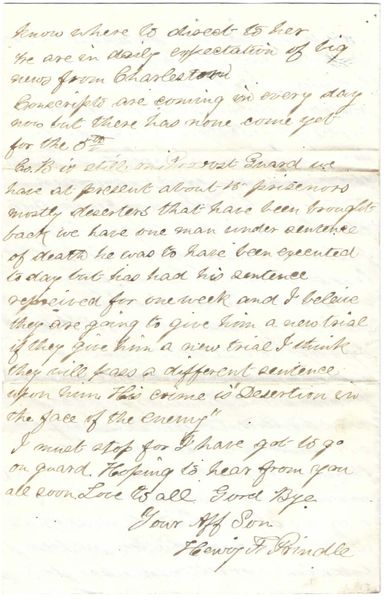 know where to direct to her
we are in daily expectation of big
news from Charlestown
Conscripts are coming in every day
now but there has none come yet
for the 5th
Co K is still on Provost Guard we
have at present about 15 prisenors
mostly deserters that have been brought
back we have one man under sentence
of death he was to have been executed
to day but has had his sentence
repreived for one week and I beleive
they are going to give him a new trial
if they give him a new trial I think
they will pass a different sentence
upon him His crime is "Desertion in
the face of the enemy"
I must stop for I have got to go
on guard. Hoping to hear from you
all soon Love to all Good Bye
Your Aff Son
Henry F Prindle